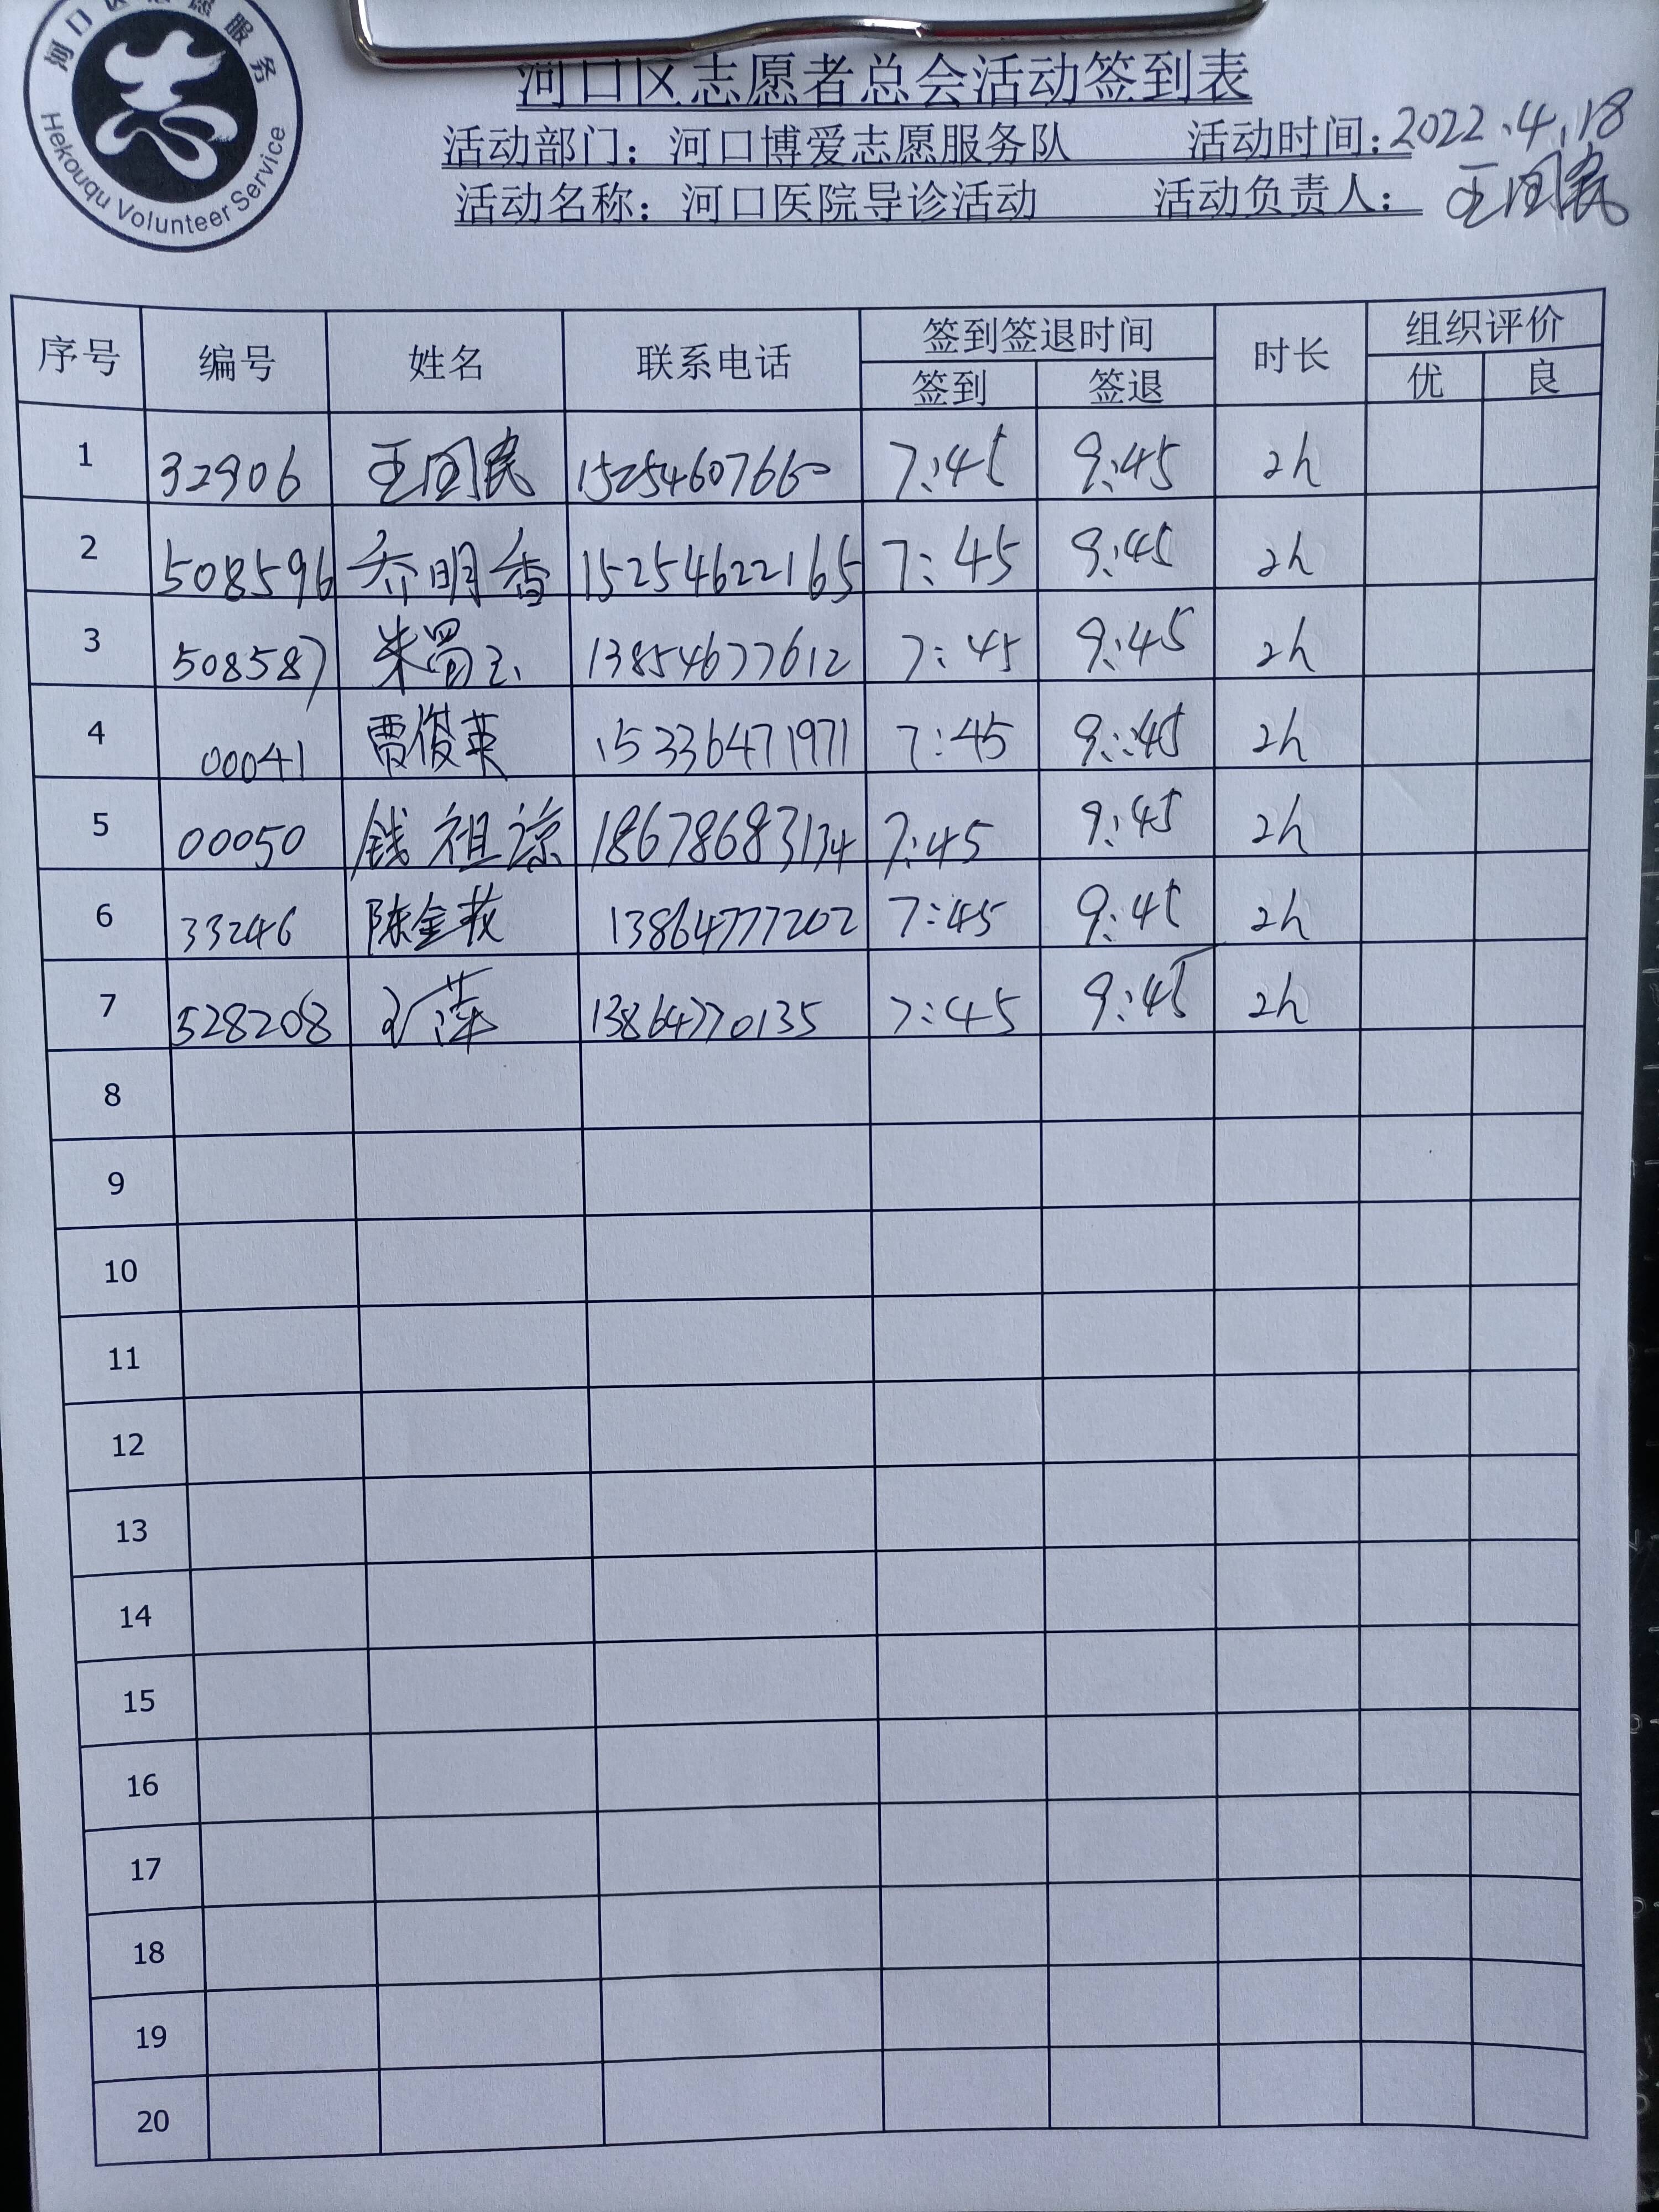 河口区志愿服务
Hekouqu Volunteer Service
河口区志愿者总会活动签到表
活动部门：河口博爱志愿服务队 活动时间：2022.4.18
活动名称：河口医院导诊活动 活动负责人：王国民
序号 编号 姓名 联系电话 签到签退时间 时长 组织评价
签到 签退 优 良
1 32906 王国民 15254607660 7:45 9:45 2h
2 508596 乔明香 15254622165 7:45 9:45 2h
3 508587 朱蜀玉 13854677612 7:45 9:45 2h
4 00041 贾俊英 15336471971 7:45 9:45 2h
5 00050 钱祖谅 18678683134 7:45 9:45 2h
6 33246 陈金 13864777202 7:45 9:45 2h
7 528208 萍 13864770135 7:45 9:45 2h
8
9
10
11
12
13
14
15
16
17
18
19
20